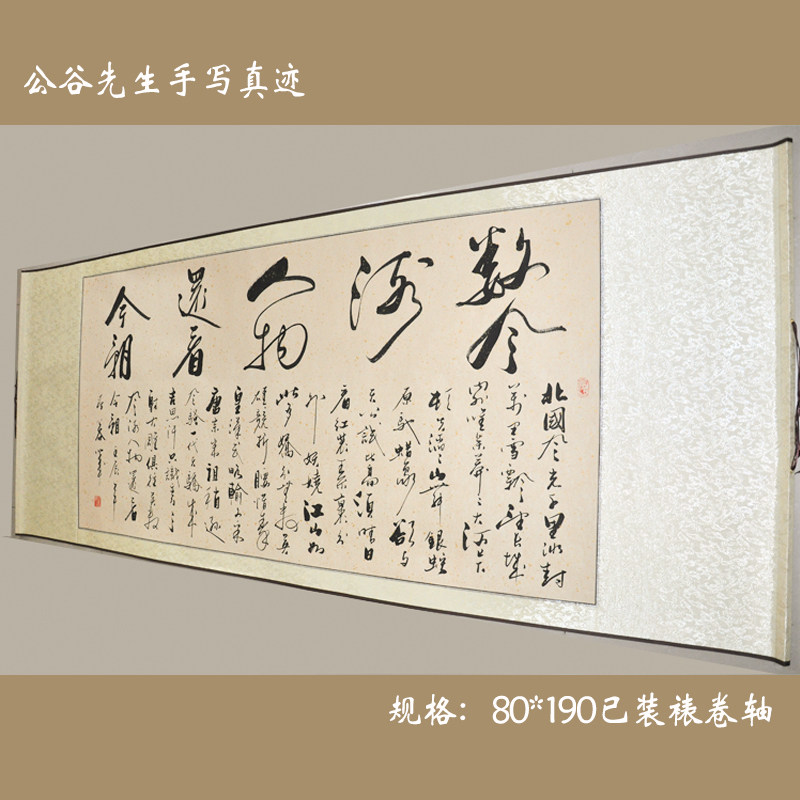 公谷先生手写真迹
数风
流
人物
還看
今朝
北國风光千里冰封
萬里雪飘望长城
内外唯余莽〻大河上下
顿失滔〻山舞銀蛇
原馳蜡象欲与
天公試比高須晴日
看红装素裹分
外妖娆江山如
此多骄引無数英
雄競折腰惜秦
皇漢武略輸文采
唐宗宋祖稍逊
风骚一代天骄成
吉思汗只識弯弓
射大雕俱往矣数
风流人物還看
今朝
规格：80*190已装裱卷轴